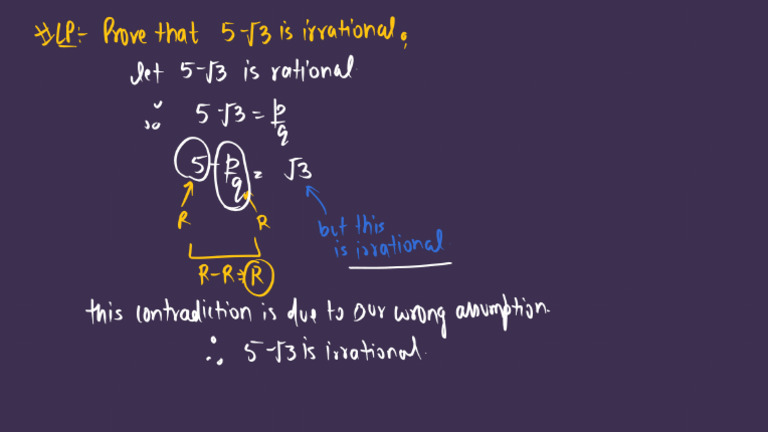 # LP:- Prove that 5-√3 is irrational.
let 5-√3 is rational
∵ 5-√3 = p/q
5 - p/q = √3
R R
but this
is irrational.
R-R ⇒ R
this contradiction is due to our wrong assumption.
∴ 5-√3 is irrational.